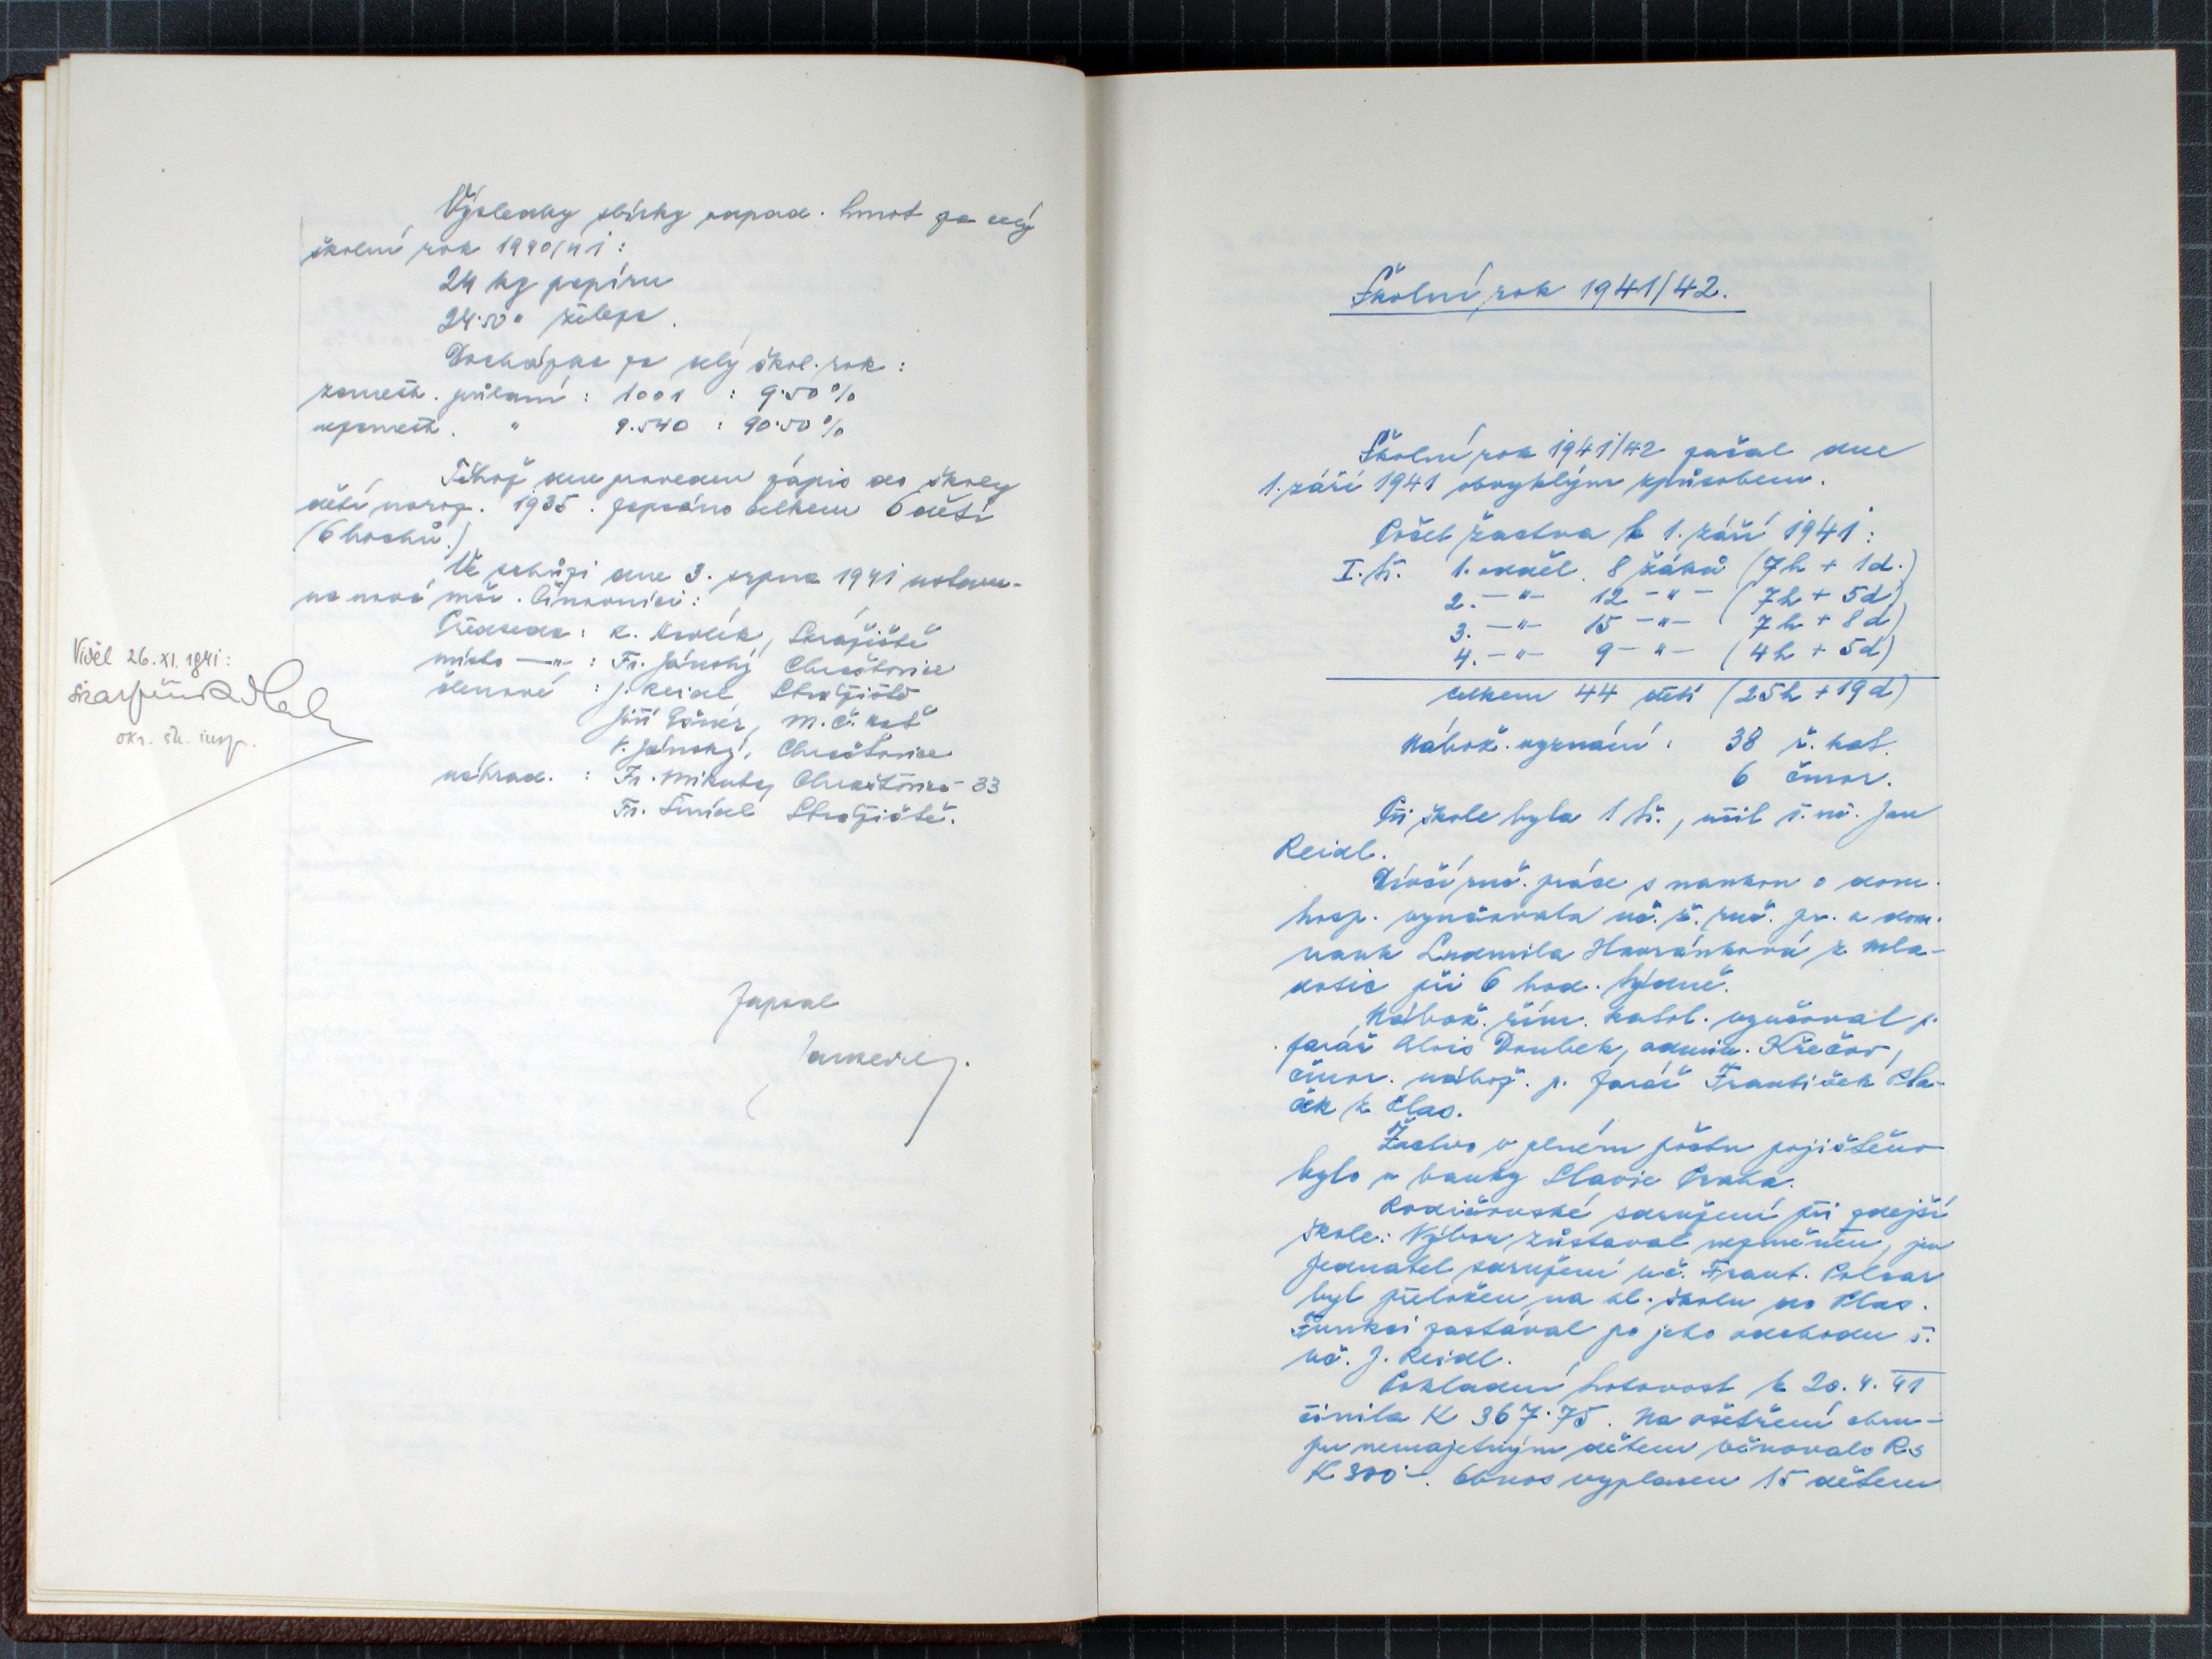 Výsledky sbírky odpad. hmot za celý
školní rok 1940/41:
24 kg papíru
24·50 " železa.
Docházka za celý škol. rok:
zamešk. půldní: 1001 : 9·50%
nezamešk. " 9.540 : 90·50%
Téhož dne proveden zápis do školy
dětí naroz. 1935. Zapsáno celkem 6 dětí
(6 hochů.)
Ve schůzi dne 3. srpna 1941 ustave-
na nová míst.
Předseda: K. Králík,
místo —"— : Fr. Jánský Chrašťovice
členové : J. Reidl
Jiří M. č. kat
V. Jánský, Chrašťovice
náhrad. : Fr. Mikuta, Chrašťovice 33
Fr. Šmídl
Viděl 26.XI.1941:
okr. šk. insp.
Zapsal
Jan Reidl
Školní rok 1941/42.
Školní rok 1941/42 začal dne
1. září 1941 obvyklým způsobem.
Počet žactva k 1. září 1941:
I. tř. 1. odděl. 8 žáků (7h + 1d.)
2. —"— 12 —"— (7h + 5d)
3. —"— 15 —"— (7h + 8d)
4. —"— 9 —"— (4h + 5d)
celkem 44 dětí (25h + 19d)
Nábož. vyznání: 38 ř. kat.
6 čmor.
Při škole byla 1 tř., učil ř. uč. Jan
Reidl.
Dívčí ruč. práce s naukou o dom.
hosp. vyučovala uč. ž. ruč. pr. a dom.
nauk Ludmila Havránková z Mla-
dotic při 6 hod. týdně.
Nábož. řím. katol. vyučoval p.
farář Alois Doubek, admin. Křečov,
čmor. nábož. p. farář František Pla-
ček z Plas.
Žactvo v plném počtu pojištěno
bylo u banky Slavie Praha.
Rodičovské sdružení při zdejší
škole: Výbor zůstaval nezměněn, jen
jednatel sdružení uč. Frant. Polcar
byl přeložen na ob. školu do Plas.
Funkci zastával po jeho odchodu ř.
uč. J. Reidl.
Pokladní hotovost k 20. 4. 41
činila K 367·75. Na ošetření chru-
pu nemajetným dětem věnovalo R.S
K 300·–. Obnos vyplacen 15 dětem